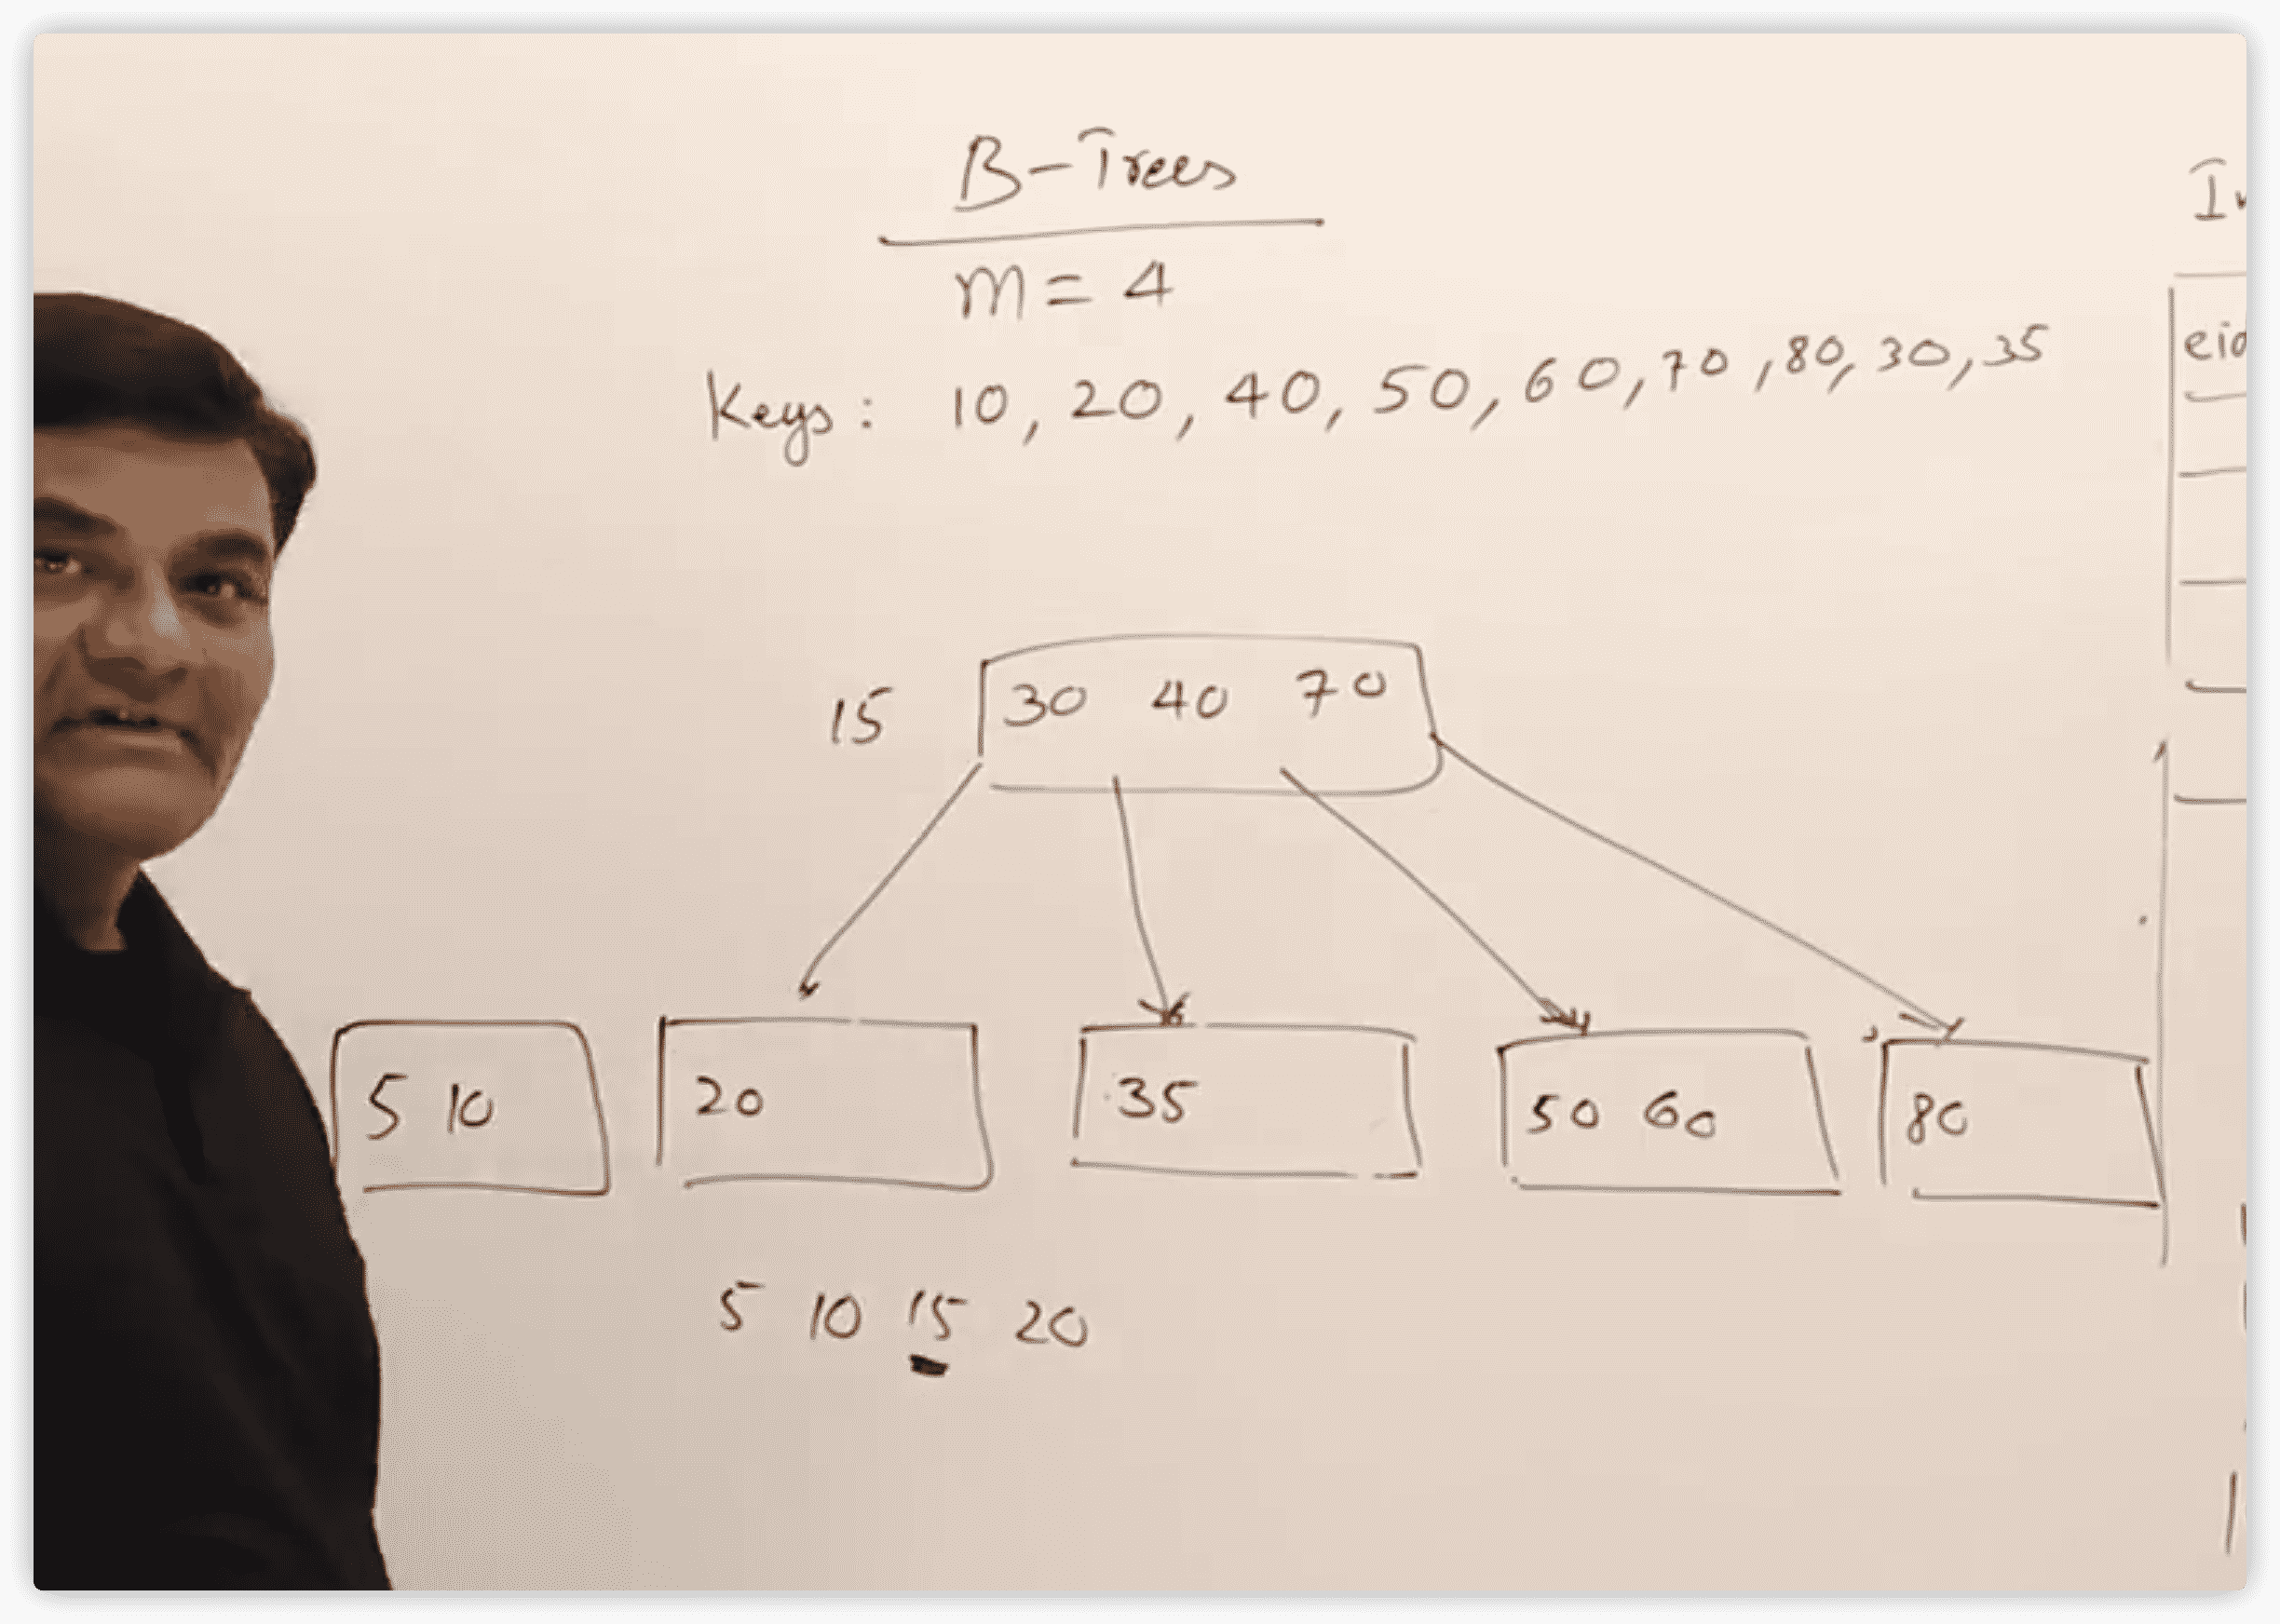 B-Trees
m = 4
Keys: 10, 20, 40, 50, 60, 70, 80, 30, 35
15
30 40 70
5 10
20
35
50 60
80
5 10 15 20